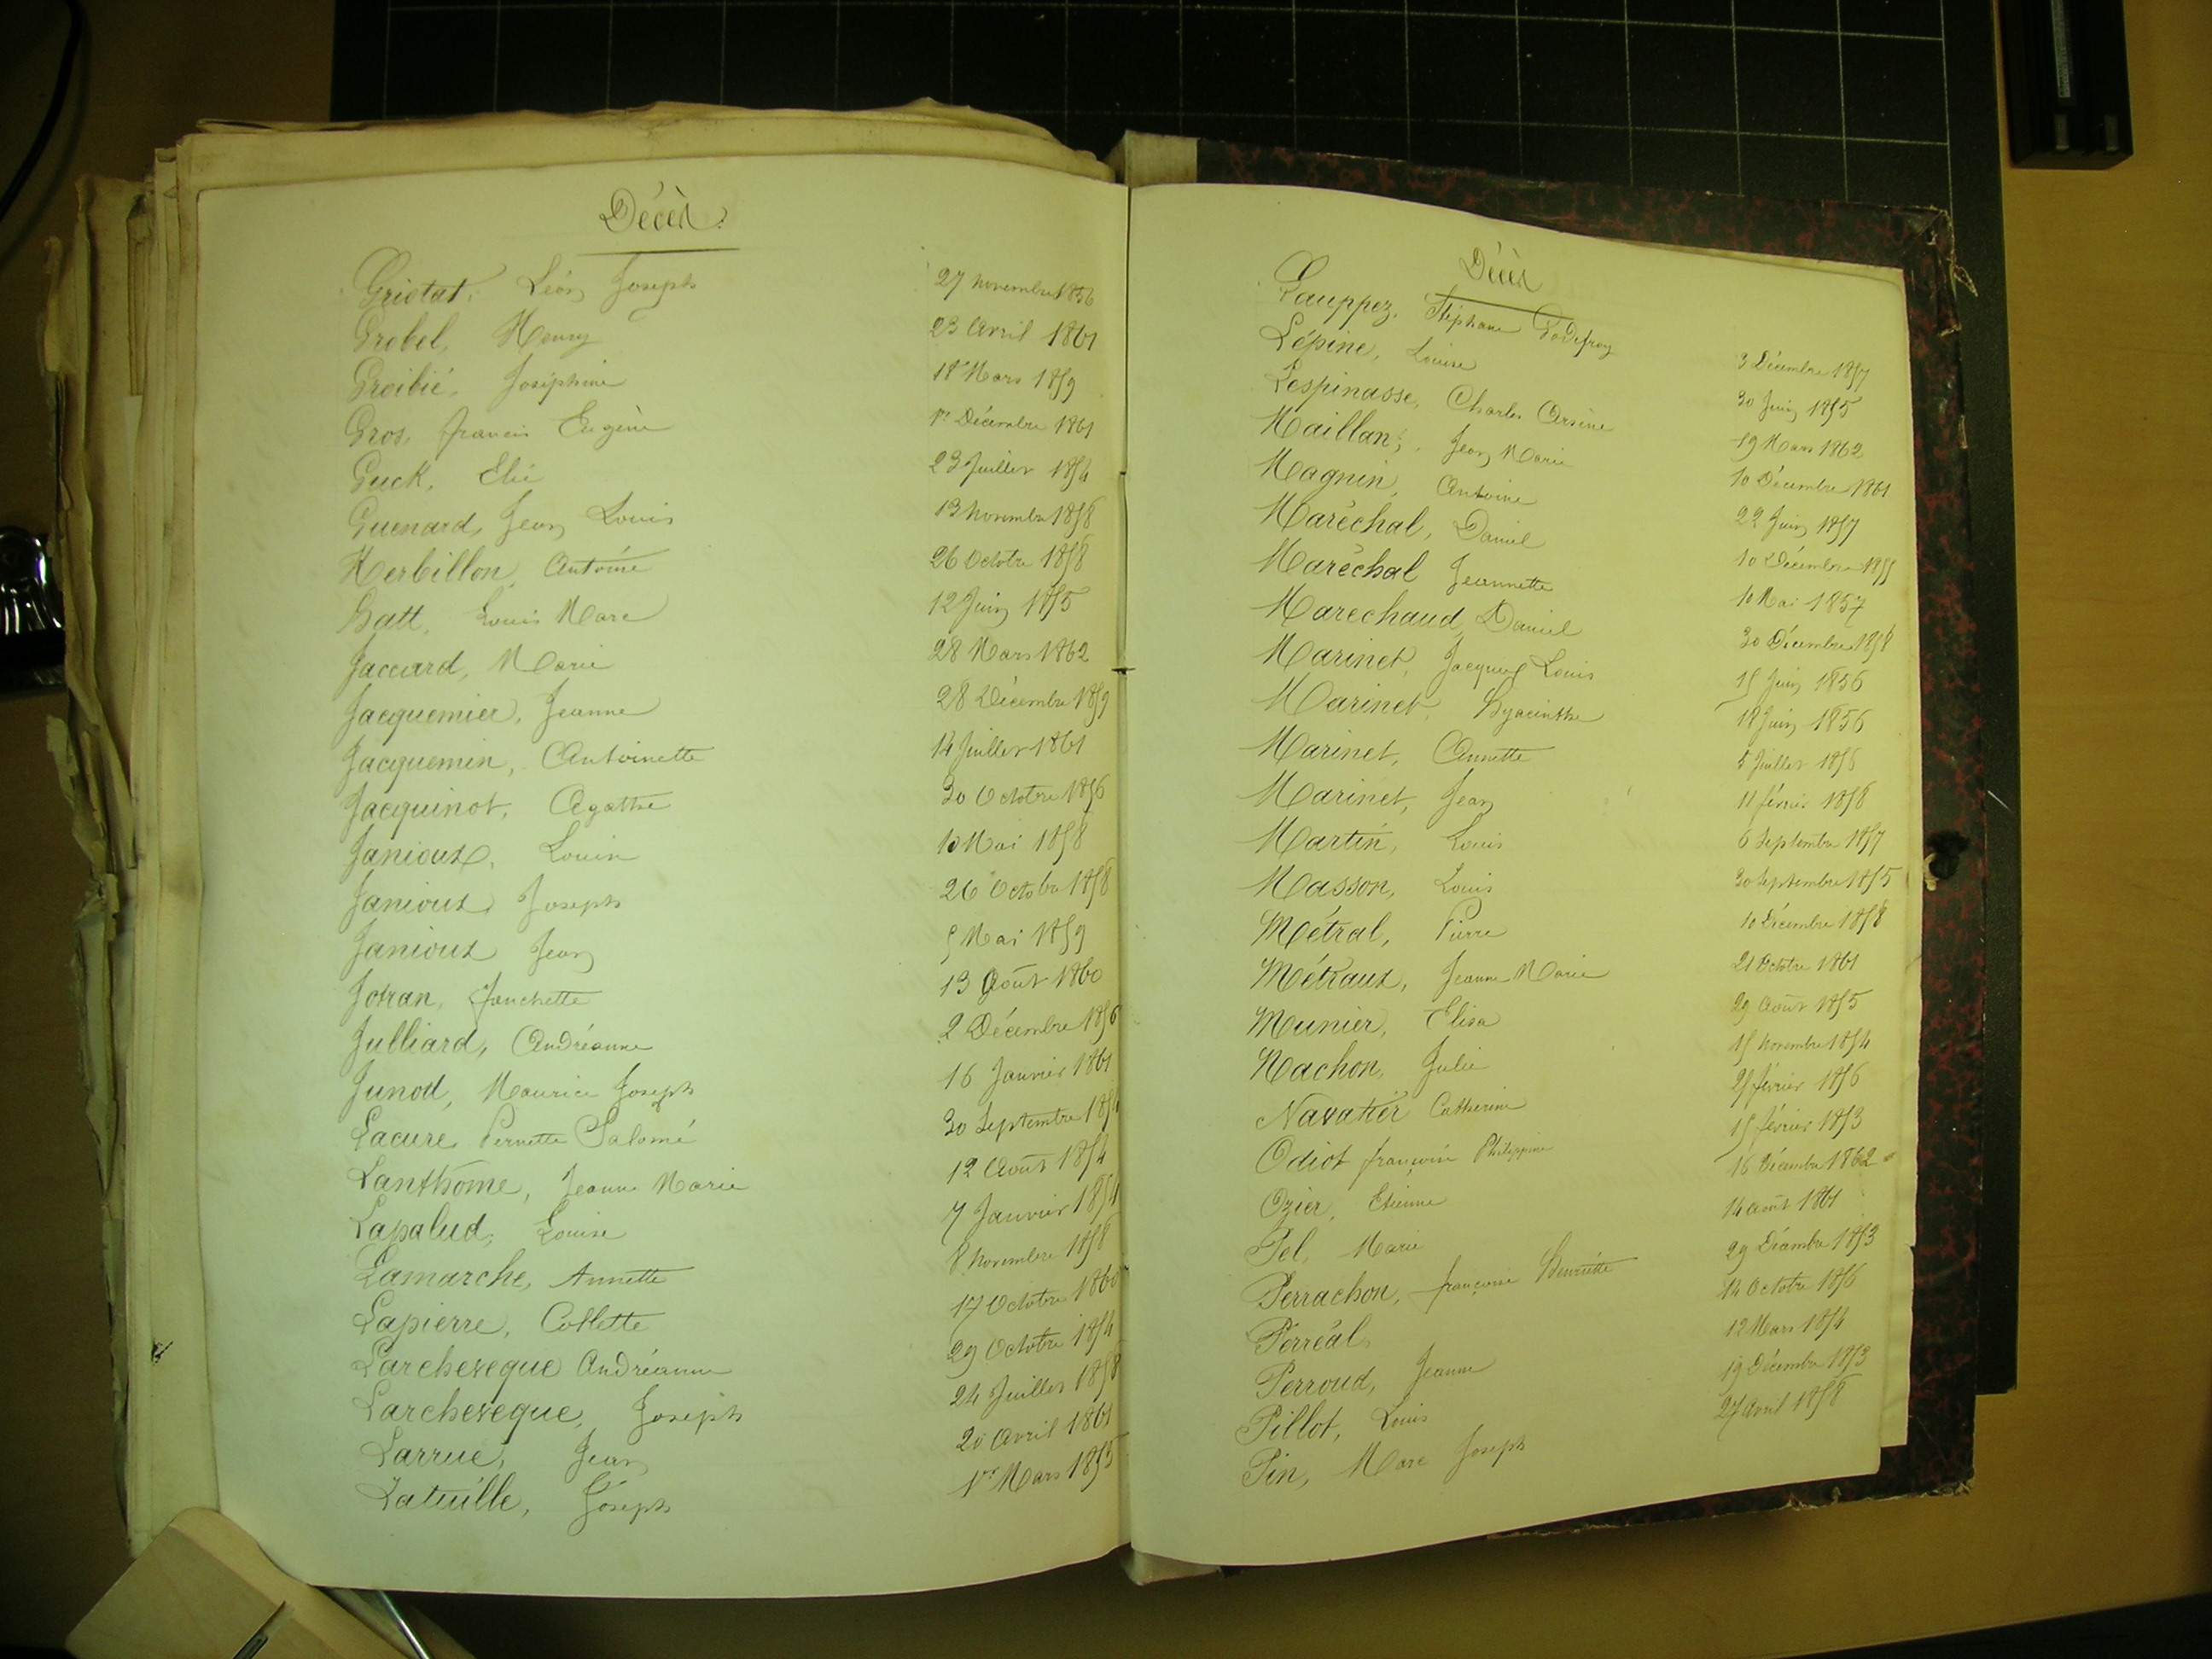 Décès.
Griotat, Léon Joseph 27 novembre 1856
Grobel, Henry 23 Avril 1861
Groibié, Joséphine 18 Mars 1859
Gros, francis Eugène 1er Décembre 1861
Guck, Elie 23 Juillet 1854
Guenard, Jean Louis 13 novembre 1858
Herbillon, Antoine 26 Octobre 1858
Hatt, Louis Marc 12 Juin 1855
Jaccard, Marie 28 Mars 1862
Jacquemier, Jeanne 28 Décembre 1859
Jacquemin, Antoinette 14 Juillet 1861
Jacquinot, Agathe 30 Octobre 1856
Janioux, Louis 10 Mai 1858
Janioux, Joseph 26 Octobre 1858
Janioux Jean 5 Mai 1859
Jotran, Fanchette 13 Août 1860
Julliard, Andréanne 2 Décembre 1856
Junod, Maurice Joseph 16 Janvier 1861
Lacure Pernette Salomé 30 Septembre
Lanthôme, Jeanne Marie 12 Août 1854
Lapalud, Louise 7 Janvier
Lamarche, Annette 8 novembre 1858
Lapierre, Collette 17 Octobre 1860
Larcheveque Andréanne 29 Octobre 1854
Larcheveque, Joseph 24 Juillet 1858
Larrué, Jean 20 Avril 1861
Latuille, Joseph 1er Mars 1855
Décès
Lauppez, Stéphane Godefroy 3 Décembre 1857
Lépine, Louise 30 Juin 1855
Lespinasse, Charles Arsène 19 Mars 1862
Maillan, Jean Marie 10 Décembre 1861
Magnin, Antoine 22 Juin 1857
Maréchal, Daniel 10 Décembre 1855
Maréchal Jeannette 10 Mai 1857
Marechaud, Daniel 30 Décembre 1858
Marinet, Jacques Louis 15 Juin 1856
Marinet, Hyacinthe 18 Juin 1856
Marinet, Annette 5 Juillet 1856
Marinet, Jean 11 février 1858
Martin, Louis 6 Septembre 1857
Masson, Louis 30 Septembre 1855
Métral, Pierre 10 Décembre 1858
Métraux, Jeanne Marie 21 Octobre 1861
Munier, Elisa 29 Août 1855
Nachon, Julie 15 novembre 1854
Navatier Catherine 25 février 1856
Odiot françois Philippine 15 février 1853
Ozier, Etienne 16 Décembre 1862
Pel, Marie 14 août 1861
Perrachon, françoise Henriette 29 Décembre 1853
Perréal, 14 Octobre 1856
Perroud, Jeanne 12 Mars 1854
Pillot, Louis 19 Décembre 1853
Pin, Marc Joseph 27 Avril 1858